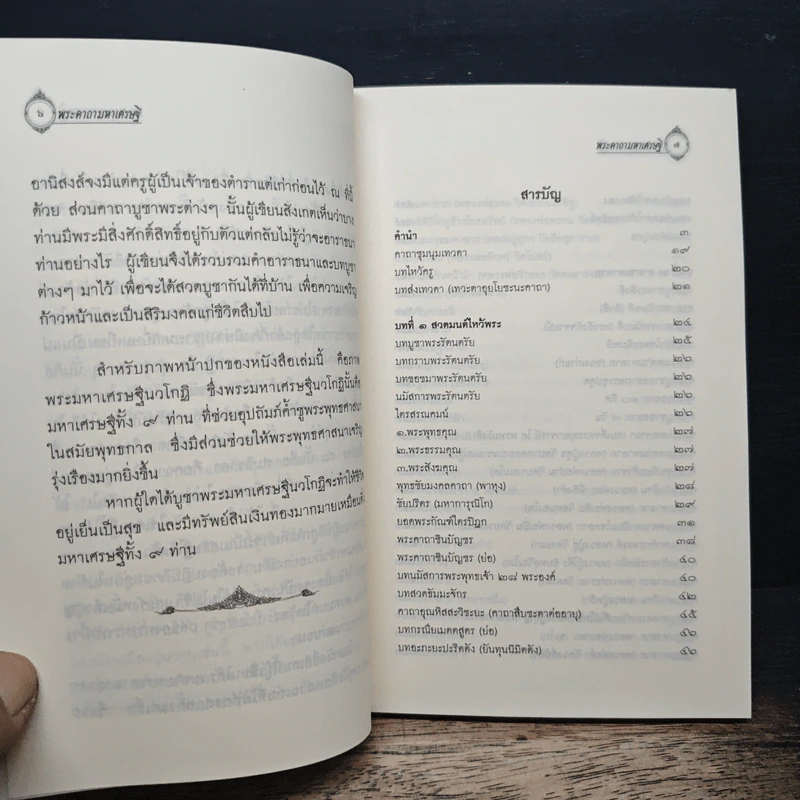 ๖ พระคาถามหาเศรษฐี
อานิสงส์จงมีแต่ครูผู้เป็นเจ้าของตำราแต่เก่าก่อนไว้ ณ ที่นี้
ด้วย ส่วนคาถาบูชาพระต่างๆ นั้นผู้เขียนสังเกตเห็นว่าบาง
ท่านมีพระมีสิ่งศักดิ์สิทธิ์อยู่กับตัวแต่กลับไม่รู้ว่าจะอาราธนา
ท่านอย่างไร ผู้เขียนจึงได้รวบรวมคำอาราธนาและบทบูชา
ต่างๆ มาไว้ เพื่อจะได้สวดบูชากันได้ที่บ้าน เพื่อความเจริญ
ก้าวหน้าและเป็นสิริมงคลแก่ชีวิตสืบไป
สำหรับภาพหน้าปกของหนังสือเล่มนี้ คือภาพ
พระมหาเศรษฐีนวโกฏิ ซึ่งพระมหาเศรษฐีนวโกฏินั้นคือ
มหาเศรษฐีทั้ง ๙ ท่าน ที่ช่วยอุปถัมภ์ค้ำชูพระพุทธศาสนา
ในสมัยพุทธกาล ซึ่งมีส่วนช่วยให้พระพุทธศาสนาเจริญ
รุ่งเรืองมากยิ่งขึ้น
หากผู้ใดได้บูชาพระมหาเศรษฐีนวโกฏิจะทำให้ชีวิต
อยู่เย็นเป็นสุข และมีทรัพย์สินเงินทองมากมายเหมือนดัง
มหาเศรษฐีทั้ง ๙ ท่าน
พระคาถามหาเศรษฐี ๗
สารบัญ
คำนำ ๓
คาถาชุมนุมเทวดา ๑๙
บทไหว้ครู ๒๐
บทส่งเทวดา (เทวะดาอุยโยชะนะคาถา) ๒๑
บทที่ ๑ สวดมนต์ไหว้พระ ๒๔
บทบูชาพระรัตนตรัย ๒๕
บทกราบพระรัตนตรัย ๒๖
บทขอขมาพระรัตนตรัย ๒๖
นมัสการพระรัตนตรัย ๒๖
ไตรสรณคมน์ ๒๖
๑.พระพุทธคุณ ๒๗
๒.พระธรรมคุณ ๒๗
๓.พระสังฆคุณ ๒๗
พุทธชัยมงคลคาถา (พาหุง) ๒๘
ชัยปริตร (มหาการุณิโก) ๒๙
ยอดพระกัณฑ์ไตรปิฎก ๓๑
พระคาถาชินบัญชร ๓๘
พระคาถาชินบัญชร (ย่อ) ๔๐
บทนมัสการพระพุทธเจ้า ๒๘ พระองค์ ๔๐
บทสวดธัมมะจักร ๔๒
คาถาอุณหิสสะวิชะยะ (คาถาสืบชะตาต่ออายุ) ๔๕
บทกรณียเมตตสูตร (ย่อ) ๔๖
บทอะภะยะปะริตตัง (ยันทุนนิมิตตัง) ๔๖